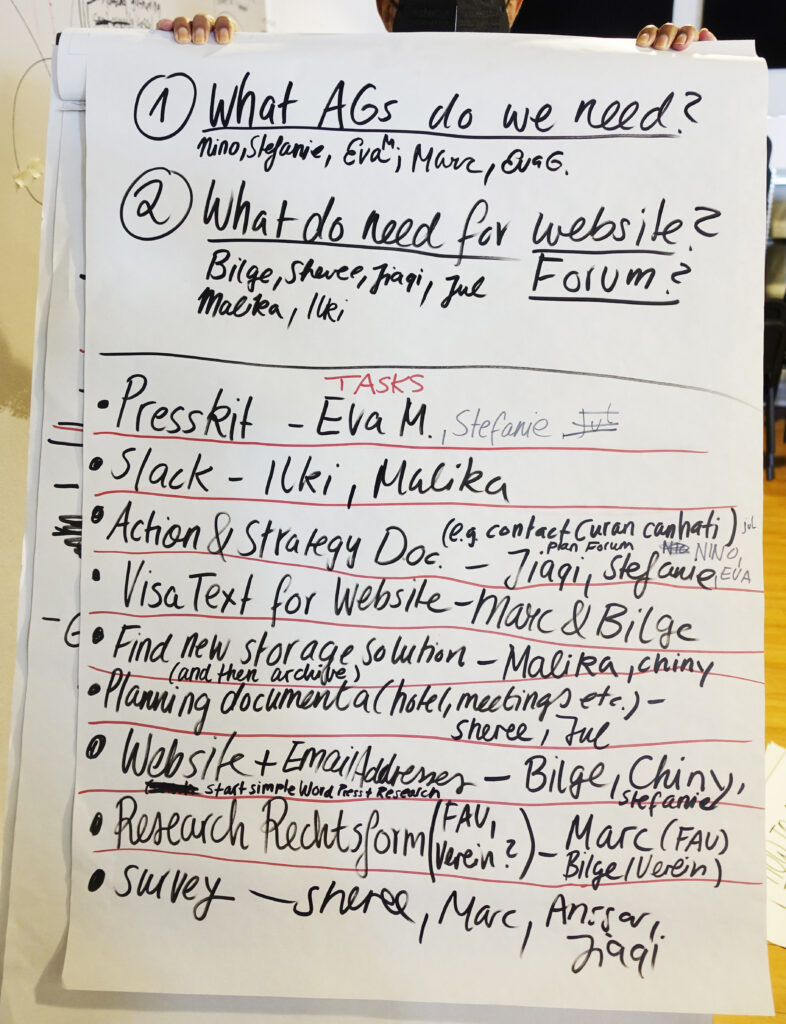 ① What AGs do we need?
Nino, Stefanie, Eva M; Marc, Eva G.
② What do need for website?
Forum?
Bilge, Sheree, Jiaqi, Jul
Malika, Ilki
TASKS
• Presskit – Eva M., Stefanie, Jul
• Slack – Ilki, Malika
• Action & Strategy Doc. (e.g contact Curan canhati) Jul
plan Forum
– Jiaqi, Stefanie, NINO, EVA
• Visa Text for Website – Marc & Bilge
• Find new storage solution – Malika, chiny
(and then archive)
• Planning documenta (hotel, meetings etc.) –
sheree, Jul
• Website + Email Addresses – Bilge, Chiny,
start simple Word Press + Research
Stefanie
• Research Rechtsform (FAU, Verein?) – Marc (FAU)
Bilge (Verein)
• survey – sheree, Marc, Anssar,
Jiaqi